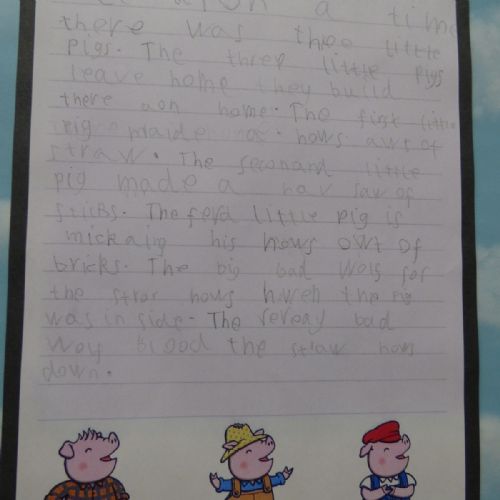 a time
there was three little
pigs. The three little pigs
leave home they build
there aon home. The first little
pig maide a hows awt of
straw. The seconand little
pig made a saw of
sticks. The ferd little pig is
mickaing his hows owt of
bricks. The big bad wolf
the straw hows the pig
was in side. The bad
the straw hows
down.